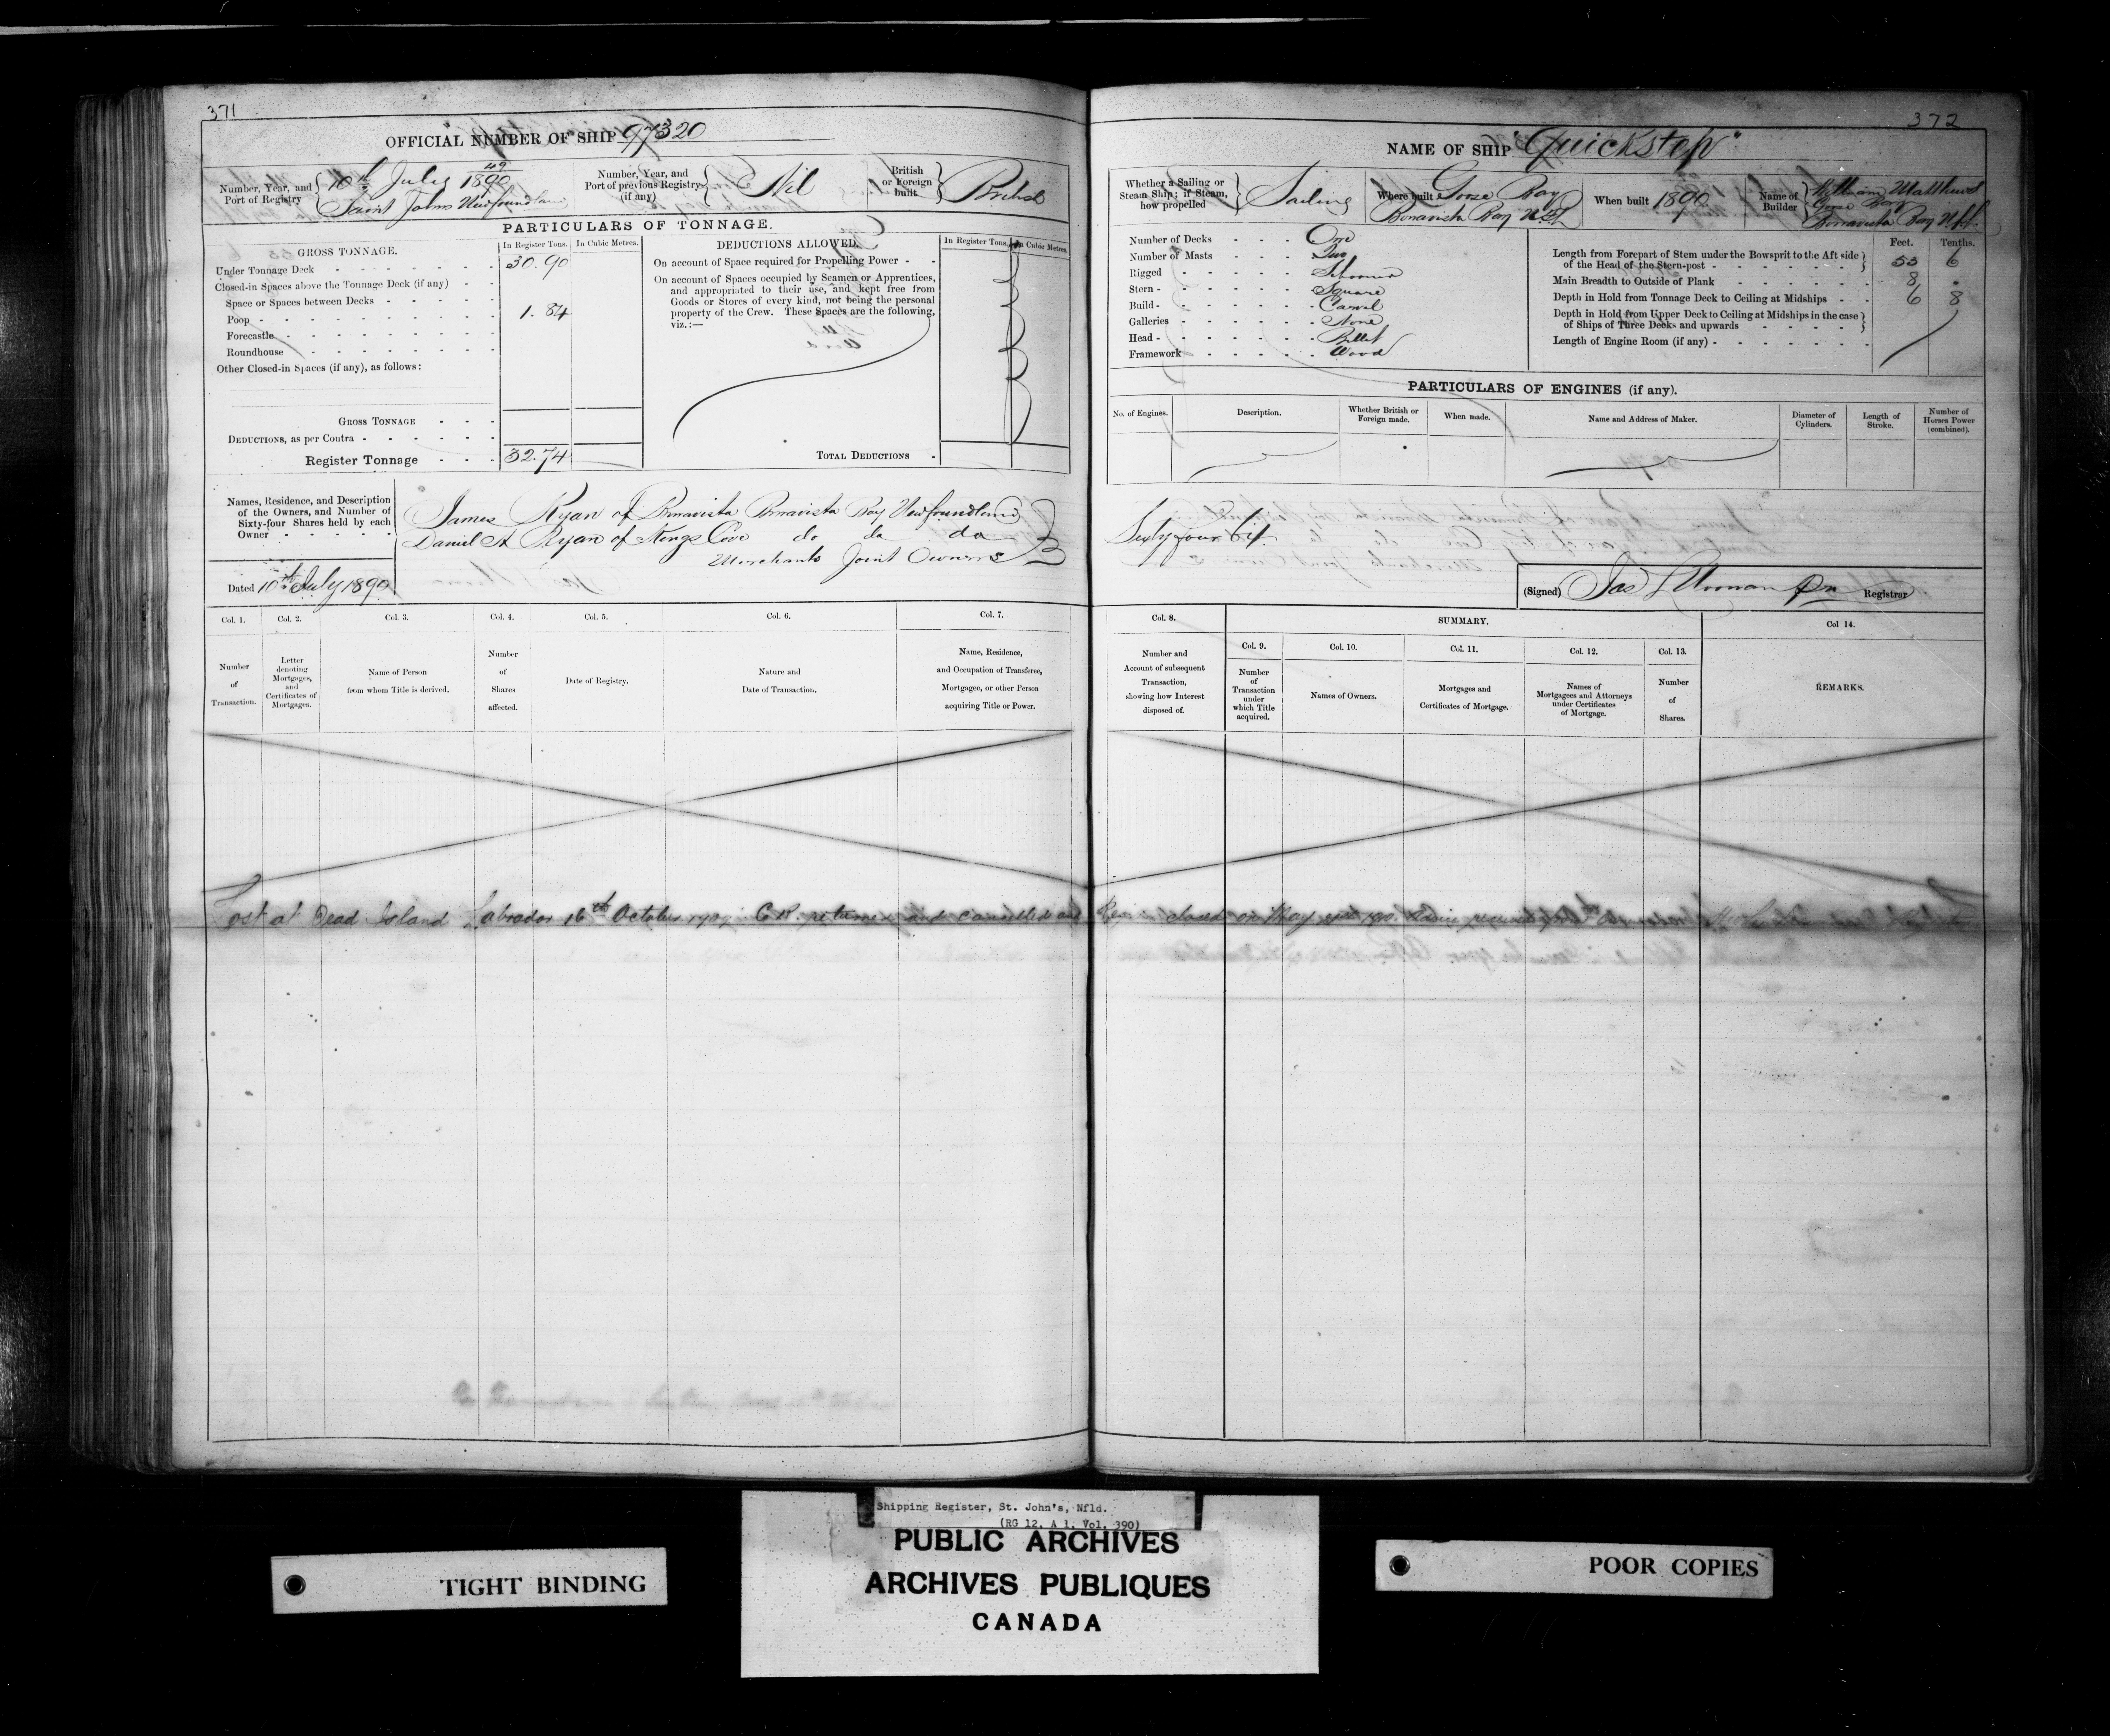 371
OFFICIAL NUMBER OF SHIP 97320
Number, Year, and Port of Registry
49
10th July 1890
Saint Johns Newfoundland
Number, Year, and Port of previous Registry (if any)
Nil
British or Foreign built.
British
PARTICULARS OF TONNAGE.
GROSS TONNAGE.
In Register Tons.
In Cubic Metres.
Under Tonnage Deck 30.90
Closed-in Spaces above the Tonnage Deck (if any)
Space or Spaces between Decks
Poop 1.84
Forecastle
Roundhouse
Other Closed-in Spaces (if any), as follows:
GROSS TONNAGE
DEDUCTIONS, as per Contra
Register Tonnage 32.74
DEDUCTIONS ALLOWED.
In Register Tons.
In Cubic Metres.
On account of Space required for Propelling Power
On account of Spaces occupied by Seamen or Apprentices,
and appropriated to their use, and kept free from
Goods or Stores of every kind, not being the personal
property of the Crew. These Spaces are the following,
viz.:—
TOTAL DEDUCTIONS
Names, Residence, and Description
of the Owners, and Number of
Sixty-four Shares held by each
Owner
James Ryan of Bonavista Bonavista Bay Newfoundland
Daniel A Ryan of Kings Cove do do do
Merchants Joint Owners
Dated 10th July 1890
Col. 1.
Number of Transaction.
Col. 2.
Letter denoting Mortgages, and Certificates of Mortgages.
Col. 3.
Name of Person from whom Title is derived.
Col. 4.
Number of Shares affected.
Col. 5.
Date of Registry.
Col. 6.
Nature and Date of Transaction.
Col. 7.
Name, Residence, and Occupation of Transferee, Mortgagee, or other Person acquiring Title or Power.
Lost at Dead Island Labrador 16th October C.R. returned and cancelled and
372
NAME OF SHIP "Quickstep"
Whether a Sailing or Steam Ship; if Steam, how propelled
Sailing
Where built
Goose Bay
Bonavista Bay Nfld
When built 1890
Name of Builder
William Matthews
Goose Bay
Bonavista Bay Nfld.
Number of Decks One
Number of Masts Two
Rigged Schooner
Stern Square
Build Carvel
Galleries None
Head Billet
Framework Wood
Feet. Tenths.
Length from Forepart of Stem under the Bowsprit to the Aft side
of the Head of the Stern-post 6
Main Breadth to Outside of Plank
Depth in Hold from Tonnage Deck to Ceiling at Midships 6 8
Depth in Hold from Upper Deck to Ceiling at Midships in the case
of Ships of Three Decks and upwards
Length of Engine Room (if any)
PARTICULARS OF ENGINES (if any).
No. of Engines.
Description.
Whether British or Foreign made.
When made.
Name and Address of Maker.
Diameter of Cylinders.
Length of Stroke.
Number of Horses Power (combined).
Sixty four 64
(Signed) Registrar
Col. 8.
Number and Account of subsequent Transaction, showing how Interest disposed of.
SUMMARY.
Col. 9.
Number of Transaction under which Title acquired.
Col. 10.
Names of Owners.
Col. 11.
Mortgages and Certificates of Mortgage.
Col. 12.
Names of Mortgagees and Attorneys under Certificates of Mortgage.
Col. 13.
Number of Shares.
Col 14.
REMARKS.
closed on May
Shipping Register, St. John's, Nfld.
(RG 12, A 1, Vol. 390)
PUBLIC ARCHIVES
ARCHIVES PUBLIQUES
CANADA
TIGHT BINDING
POOR COPIES